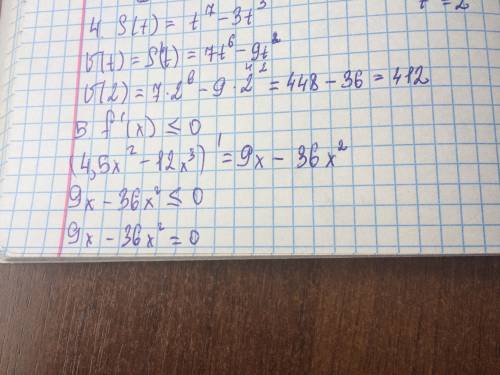 t = 2
4. S(t) = t⁷ - 3t³
v(t) = S'(t) = 7t⁶ - 9t²
v(2) = 7 · 2⁶ - 9 · 2² = 448 - 36 = 412
5 f'(x) ≤ 0
(4,5x² - 12x³)' = 9x - 36x²
9x - 36x² ≤ 0
9x - 36x² = 0